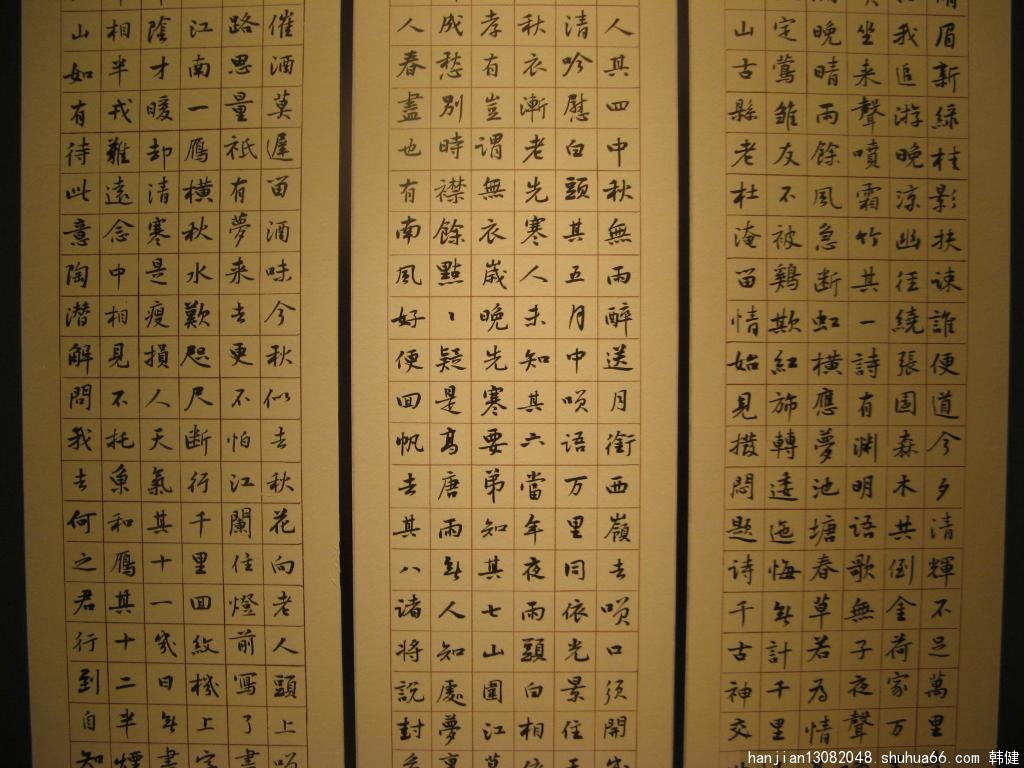 眉新綠桂影扶疎誰便道今夕清輝不足萬里
我追游晚涼幽徑繞張園森木共倒金荷家万
坐来聲噴霜竹其一詩有淵明語歌無子夜聲
晚晴雨餘風急断虹橫應夢池塘春草若為情
定鶯雛友不被鷄欺紅旆轉逶迤悔無計千里
山古縣老杜淹留情始見撥悶題詩千古神交
人其四中秋無雨醉送月銜西嶺去咲口須開
清吟慰白頭其五月中咲語万里同依光景住
秋衣漸老先寒人未知其六當年夜雨頭白相
孝有豈謂無衣歲晚先寒要弟知其七山圍江
成愁別時襟餘點〻疑是高唐雨無人知處夢
人春盡也有南風好便回帆去其八诸將說封
催酒莫遲留酒味今秋似去秋花向老人頭上
路思量祇有夢来去更不怕江闌住燈前寫了
江南一鴈橫秋水歎咫尺断行千里回紋機上
陰才暖却清寒是瘦損人天氣其十一幾日無
相半戎難遠念中相見不托魚和鴈其十二半煙
山如有待此意陶潜解問我去何之君行到自知
hanjian13082048.shuhua66.com 韩健